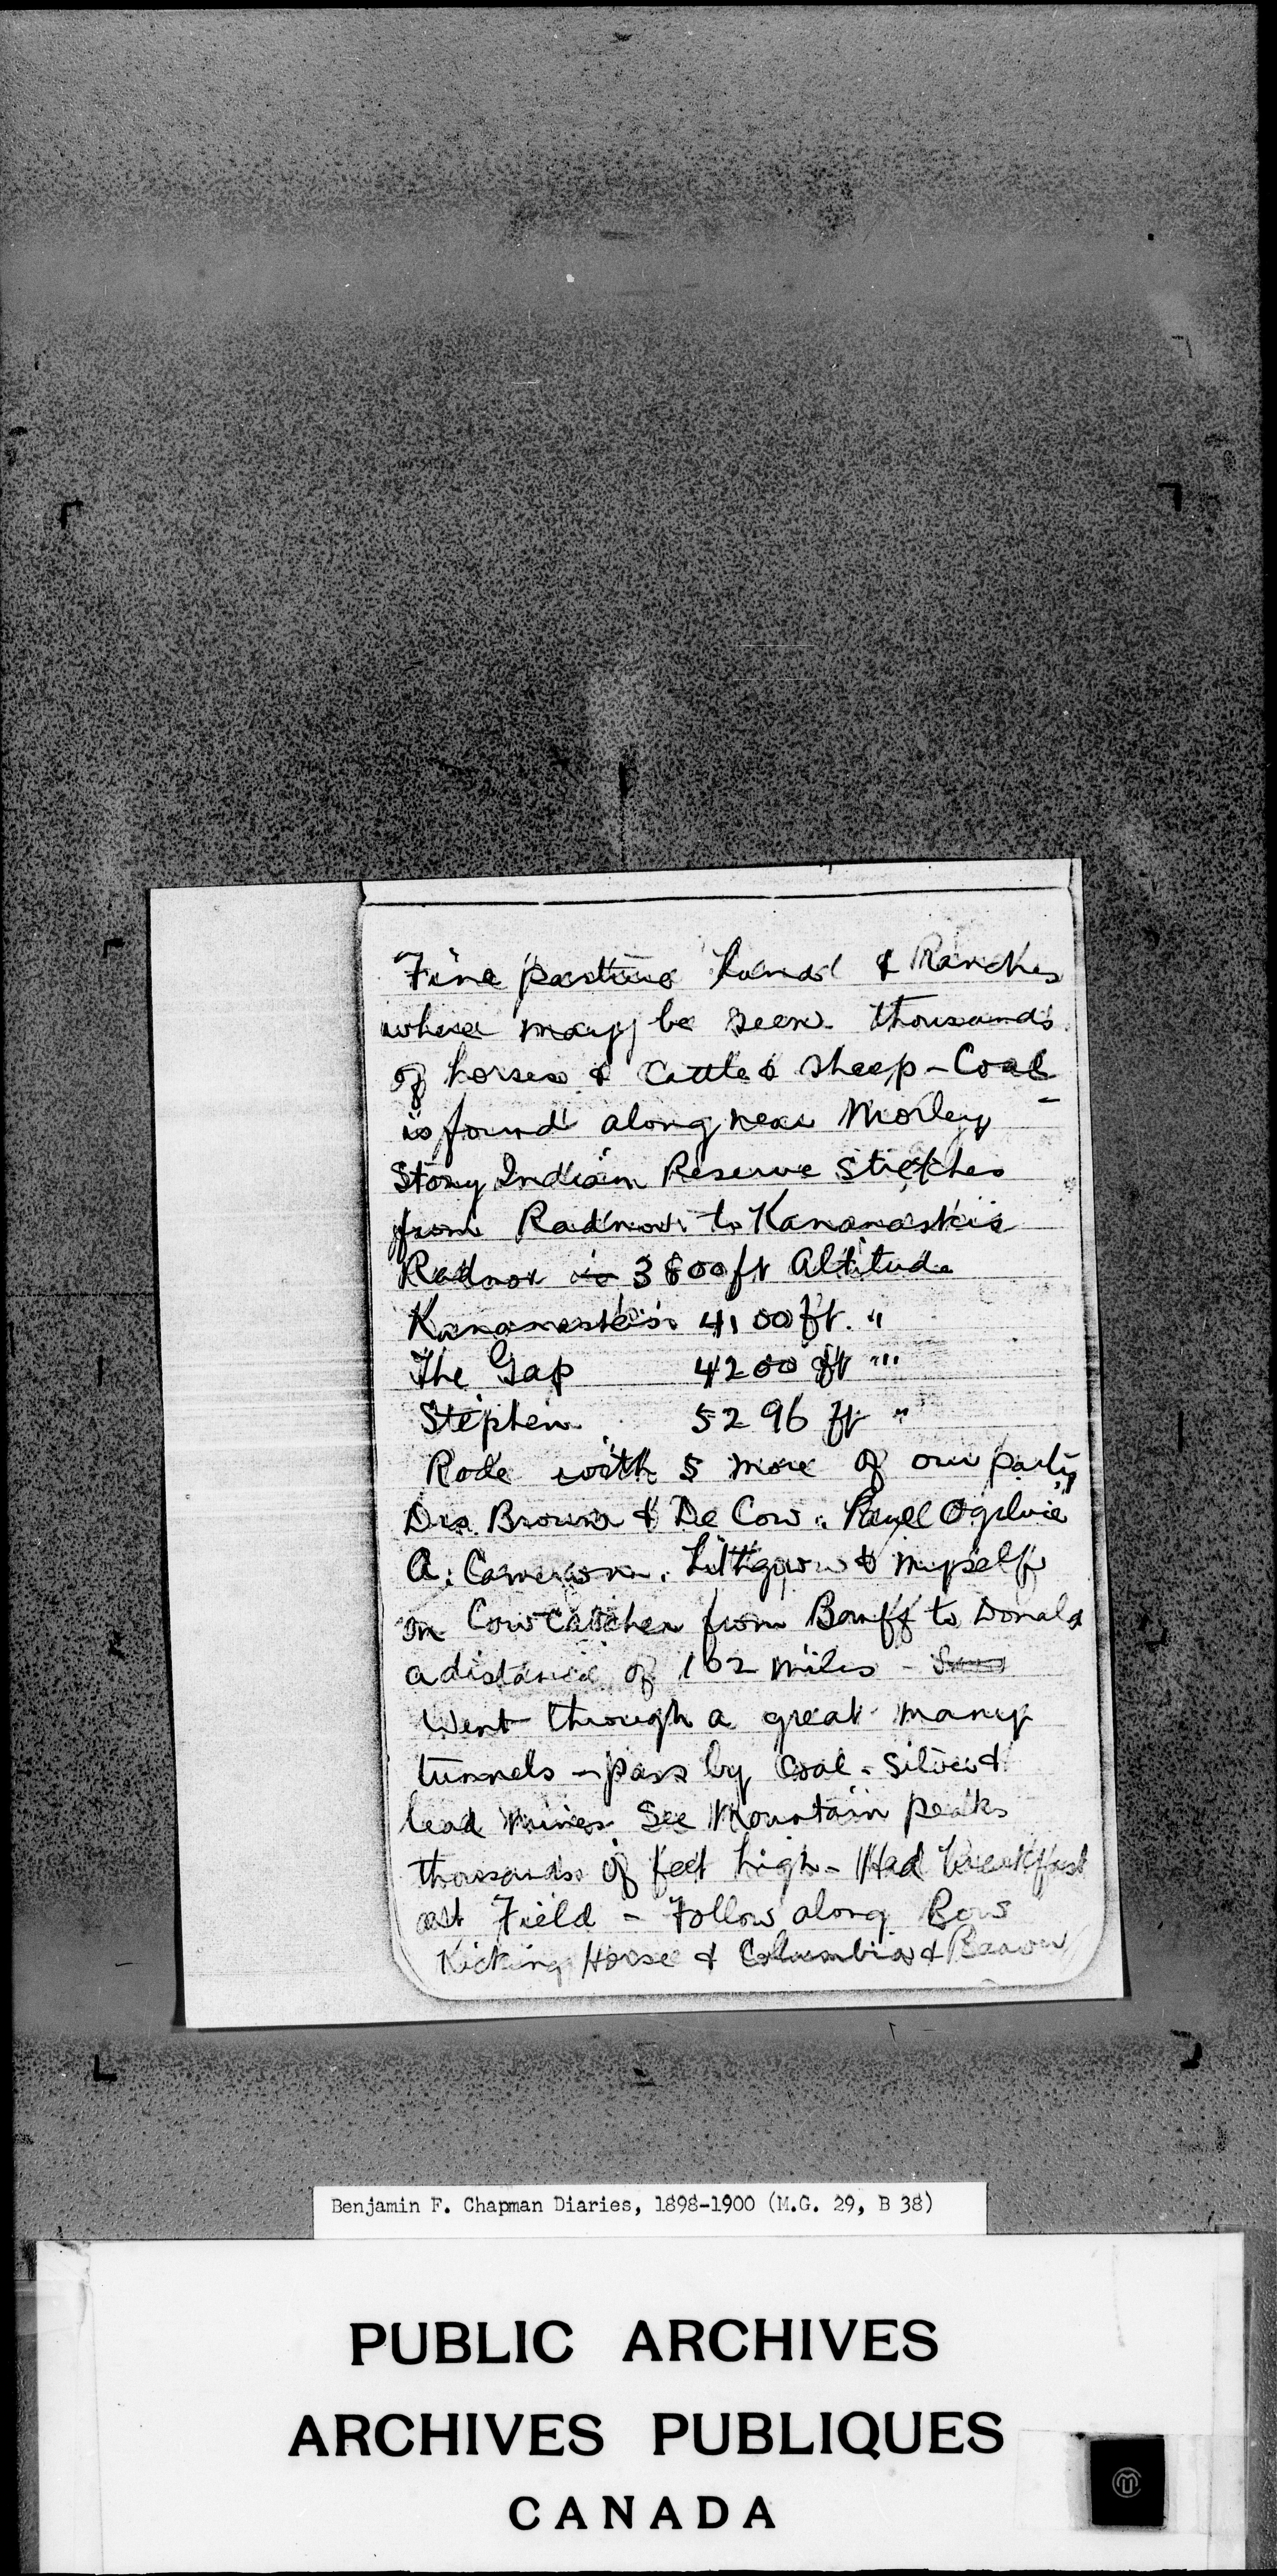 Fine pasture Land & Ranches
where may be seen thousands
of horses & Cattle & sheep - Coal
is found along near Morley -
Stony Indian Reserve Stretches
from Radnor to Kananaskis
Radnor is 3800 ft Altitude
Kananaskis 4100 ft. "
The Gap 4200 ft "
Stephen 5296 ft "
Rode with 5 more of our party
Drs. Brown & De Cow. Ogilvie
A. Cameron. Lithgow & myself
on Cow Catcher from Banff to Donald
a distance of 102 miles -
Went through a great many
tunnels - pass by Coal - Silver &
lead mines. See Mountain peaks
thousands of feet high - Had breakfast
at Field - Follow along Bow
Kicking Horse & Columbia & Beaver
Benjamin F. Chapman Diaries, 1898-1900 (M.G. 29, B 38)
PUBLIC ARCHIVES
ARCHIVES PUBLIQUES
CANADA